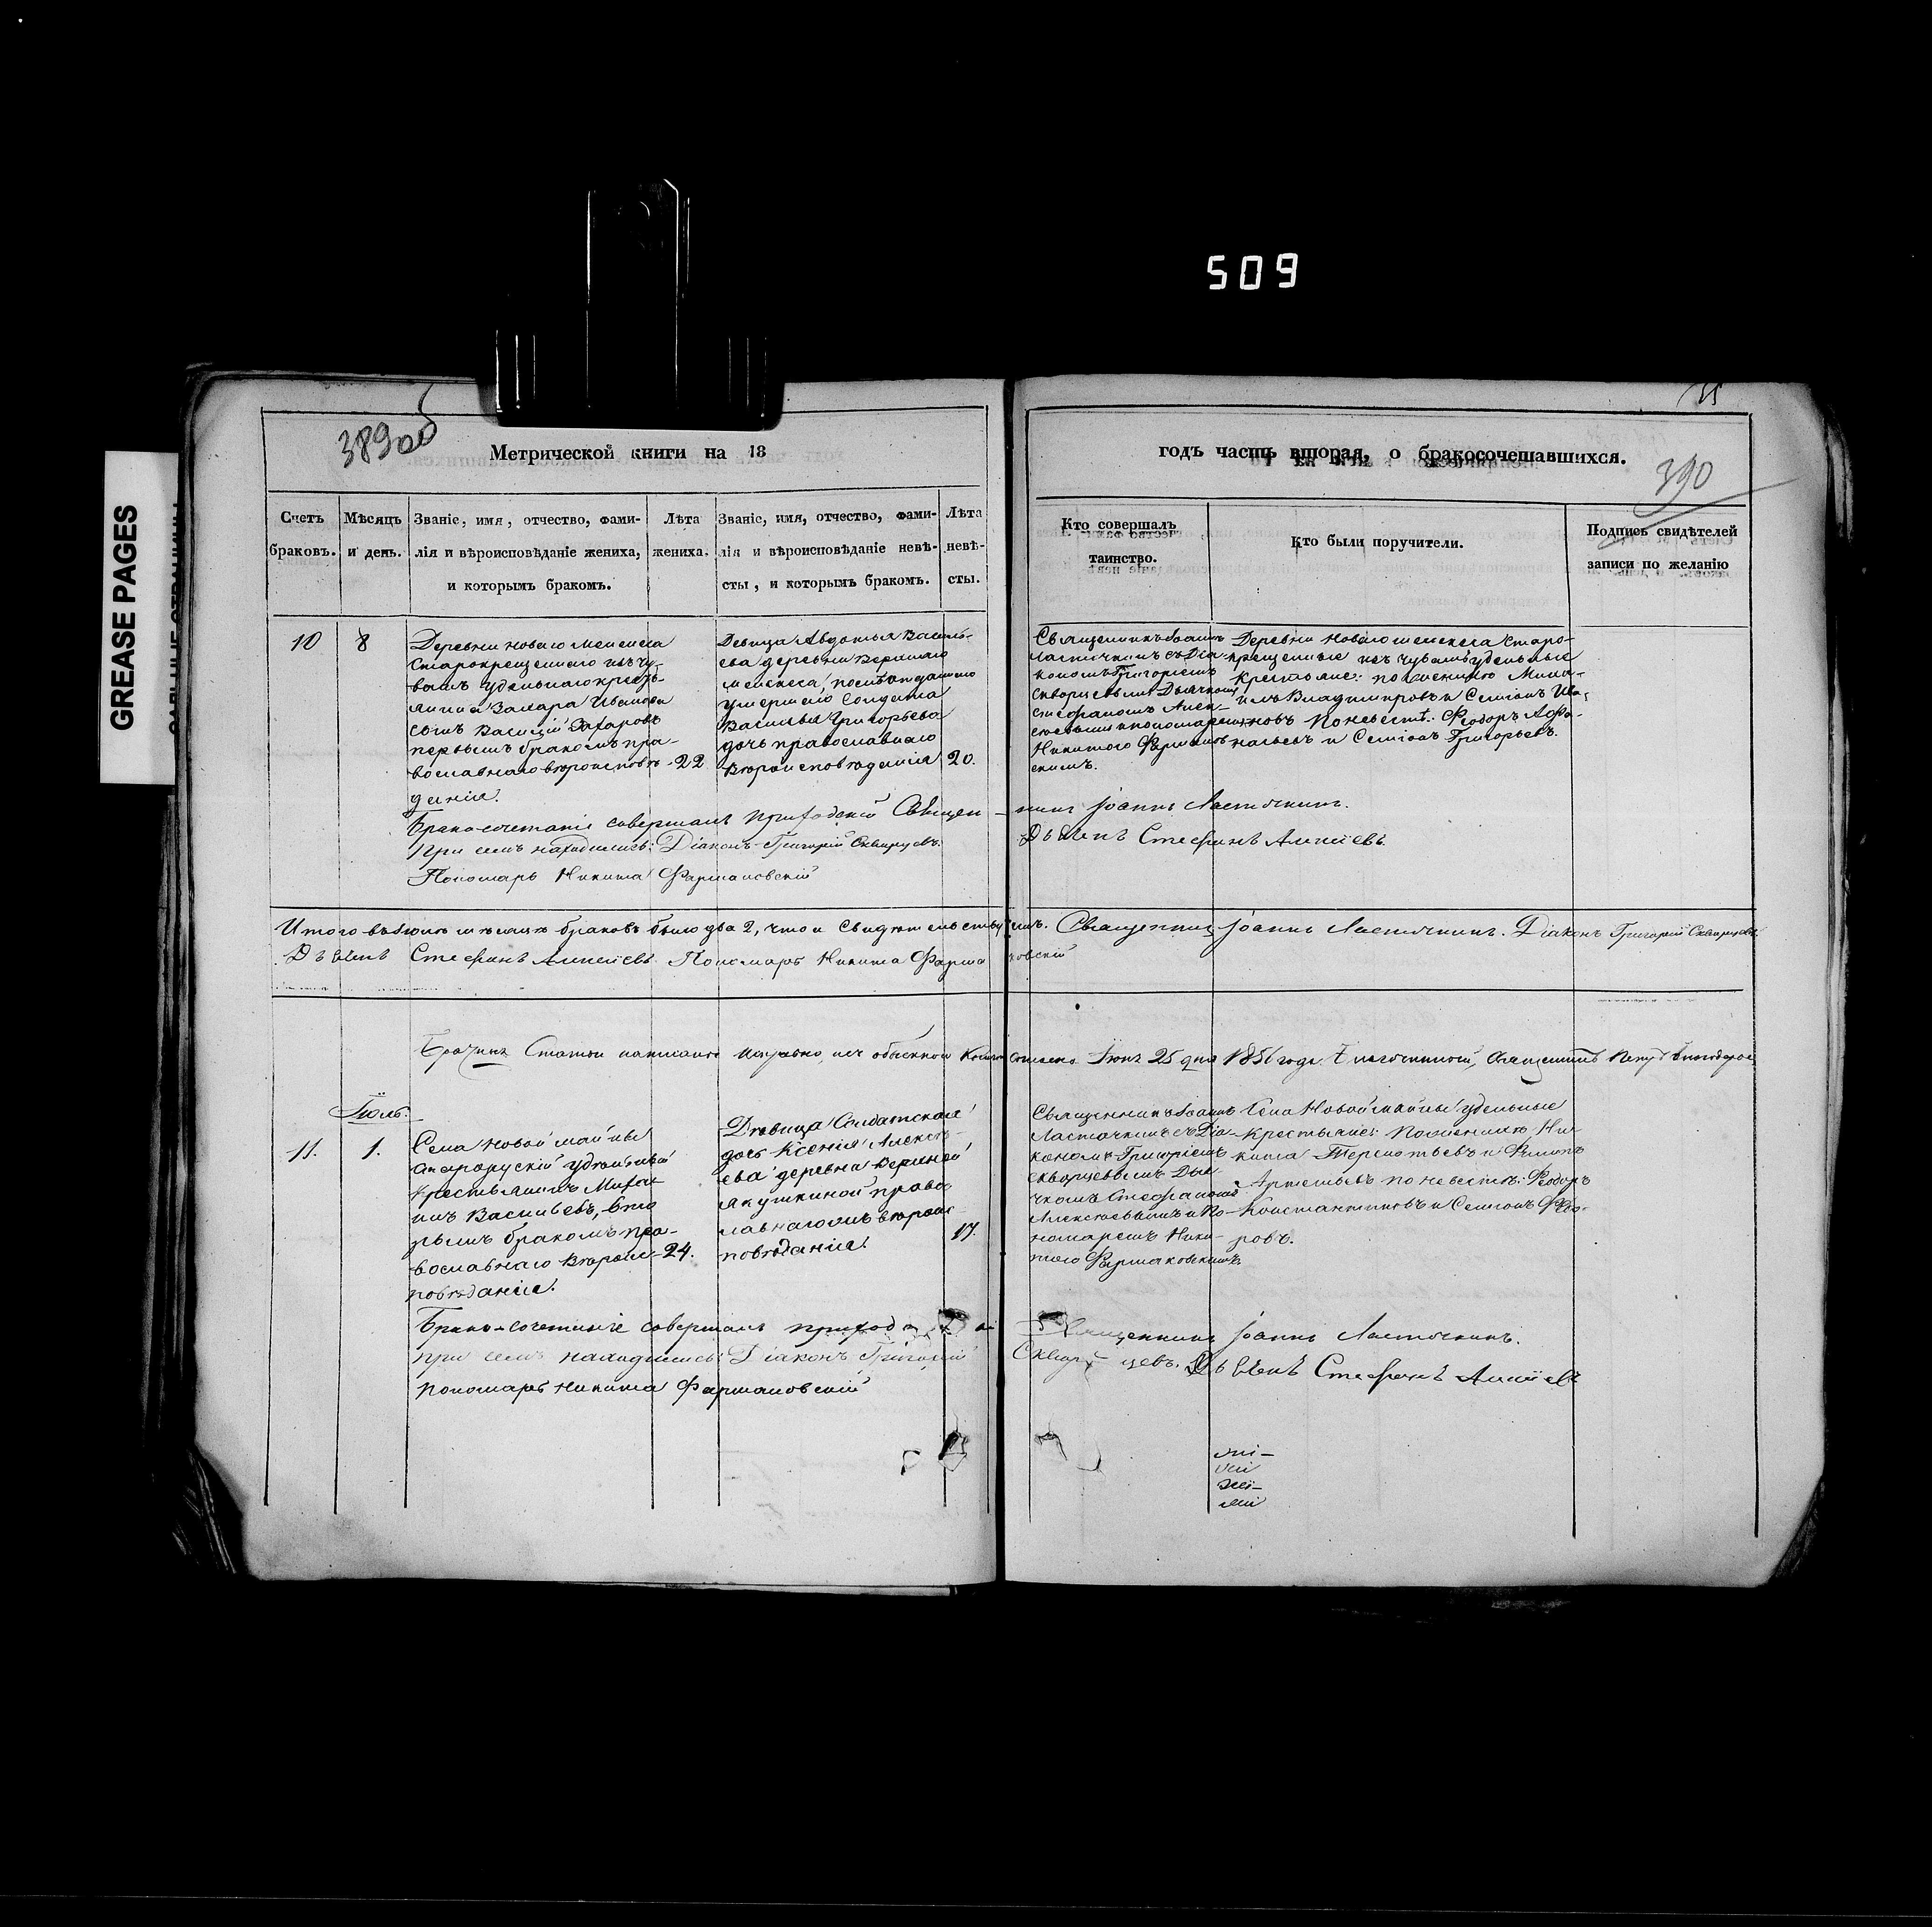 GREASE PAGES
509
389об
Метрической книги на 18
годъ часть вторая, о бракосочетавшихся.
390
Счетъ браковъ.
Мѣсяцъ и день.
Званіе, имя, отчество, фами-
лія и вѣроисповѣданіе жениха,
и которымъ бракомъ.
Лѣта жениха.
Званіе, имя, отчество, фами-
лія и вѣроисповѣданіе невѣ-
сты, и которымъ бракомъ.
Лѣта невѣ-
сты.
Кто совершалъ
таинство.
Кто были поручители.
Подпись свидѣтелей
записи по желанію
10
8
Деревни Новаго
Старокрещеннаго изъ чу-
вашъ удѣльнаго кресть-
янина Захара Иванова
сынъ Василій Захаровъ
первымъ бракомъ пра-
вославнаго вѣроисповѣ-
данія.
22
Девица Авдотья Василь-
ева деревни
умершаго Солдата
Василья Григорьева
дочь православнаго
вѣроисповѣданія
20.
Священникъ Іоаннъ
Ласточкинъ съ Діа-
кономъ Григоріемъ
Скворцевымъ Дьячкомъ
Стефаномъ Алек-
сѣевымъ и пономаремъ
Никитою Фармаков-
скимъ.
Деревни Новаго Старо-
крещенные изъ чувашъ удѣльные
крестьяне: по женихѣ Миха-
илъ Владимировъ и Семенъ Ива-
новъ по невестѣ: Феодоръ Афа-
насьевъ и Семенъ Григорьевъ.
Брако-сочетаніе совершалъ приходскій Священникъ Іоаннъ Ласточкинъ.
При семъ находились: Діаконъ Григорій Скворцевъ. Дьячекъ Стефанъ Алексіевъ.
Пономарь Никита Фармаковскій
Итого въ Іюнѣ мѣсяцѣ браковъ было два 2, что и свидѣтельствуемъ. Священникъ Іоаннъ Ласточкинъ. Діаконъ Григорій Скворцевъ
Дьячекъ Стефанъ Алексіевъ Пономарь Никита Фармаковскій
Статьи написаны исправно, Іюня 25 дня 1856 года. Благочинный, Священникъ Петръ
Іюль.
11.
1.
Села Новой майны
старорускій удѣльный
крестьянинъ Миха-
илъ Васильевъ, вто
рымъ бракомъ пра-
вославнаго вѣроис-
повѣданія.
24.
Дѣвица Солдатская
дочь Ксенія Алексѣ-
ева деревни Верхней
Якушкиной право
славнаго вѣроис
повѣданія.
17.
Священникъ Іоаннъ
Ласточкинъ съ Діа-
кономъ Григоріемъ
Скворцевымъ Дья-
чкомъ Стефаномъ
Алексѣевымъ и По-
номаремъ Ники-
тою Фармаковскимъ
Села Новой майны удельные
Крестьяне: По женихѣ Ни-
кита Терентьевъ и Филипъ
Артемьевъ по невестѣ: Феодоръ
Константиновъ и Семенъ Фео-
ровъ.
Брако-сочетаніе совершалъ Священникъ Іоаннъ Ласточкинъ.
при семъ находились: Діаконъ Григорій Скворцевъ. Дьячекъ Стефанъ Алексіевъ
пономарь Никита Фармаковскій